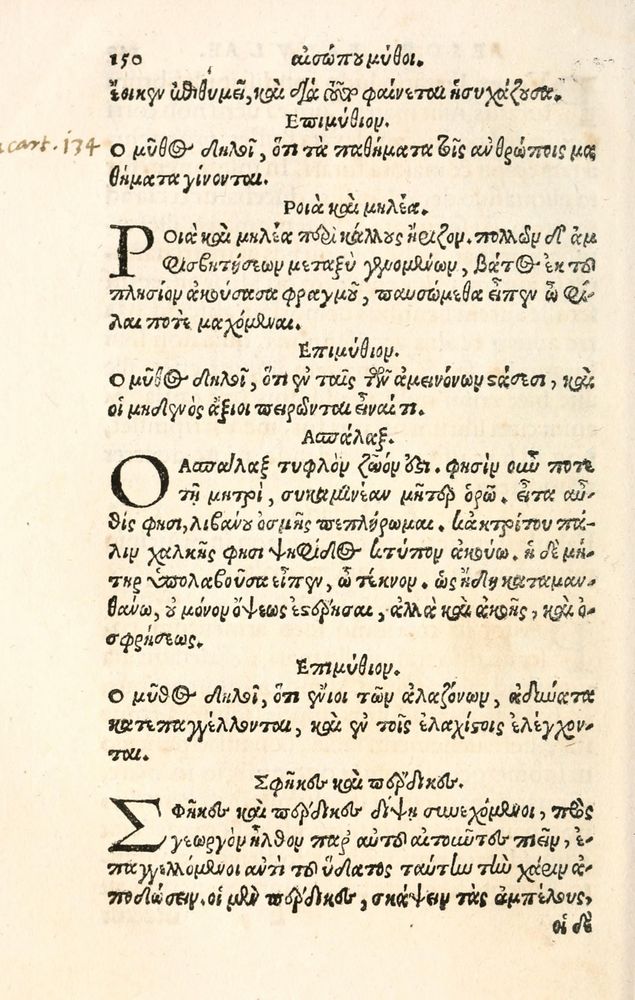 150 αἰσώπου μῦθοι.
ἔοικεν ἀθυμεῖ, καὶ διὰ τοῦτο φαίνεται ἡσυχάζουσα.
Ἐπιμύθιον.
cart. 134
Ο μῦθος δηλοῖ, ὅτι τὰ παθήματα τοῖς ἀνθρώποις μα
θήματα γίνονται.
Ροιὰ καὶ μηλέα.
ΡΟιὰ καὶ μηλέα περὶ κάλλους ἤριζον. πολλῶν δ' ἀμ
φισβητήσεων μεταξὺ γενομένων, βάτος ἐκ τοῦ
πλησίον ἀκούσασα φραγμοῦ, παυσώμεθα εἶπεν ὦ φί-
λαι ποτὲ μαχόμεναι.
Ἐπιμύθιον.
Ο μῦθος δηλοῖ, ὅτι ἐν ταῖς τῶν ἀμεινόνων στάσεσι, καὶ
οἱ μηδενὸς ἄξιοι πειρῶνται εἶναί τι.
Ασπάλαξ.
Ο Ασπάλαξ τυφλὸν ζῶόν ἐστι. φησὶν οὖν ποτε
τῇ μητρὶ, συκαμινέαν μῆτερ ὁρῶ. εἶτα αὖ-
θίς φησι, λιβάνου ὀσμῆς πεπλήρωμαι. κἀκ τρίτου πά-
λιν χαλκῆς φησι ψηφῖδος κτύπον ἀκούω. ἡ δὲ μή-
τηρ ὑπολαβοῦσα εἶπεν, ὦ τέκνον. ὡς ἤδη καταμαν-
θάνω, οὐ μόνον ὄψεως ἐστέρησαι, ἀλλὰ καὶ ἀκοῆς, καὶ ὀ-
σφρήσεως.
Ἐπιμύθιον.
Ο μῦθος δηλοῖ, ὅτι ἔνιοι τῶν ἀλαζόνων, ἀδύνατα
κατεπαγγέλλονται, καὶ ἐν τοῖς ἐλαχίστοις ἐλέγχον-
ται.
Σφῆκες καὶ πέρδικες.
ΣΦῆκες καὶ πέρδικες δίψῃ συνεχόμενοι, πρὸς
γεωργὸν ἦλθον παρ' αὐτοῦ αἰτοῦντες πιεῖν, ἐ-
παγγελλόμενοι ἀντὶ τοῦ ὕδατος ταύτην τὴν χάριν ἀ-
ποδώσειν. οἱ μὲν πέρδικες, σκάψειν τὰς ἀμπέλους,
οἱ δὲ